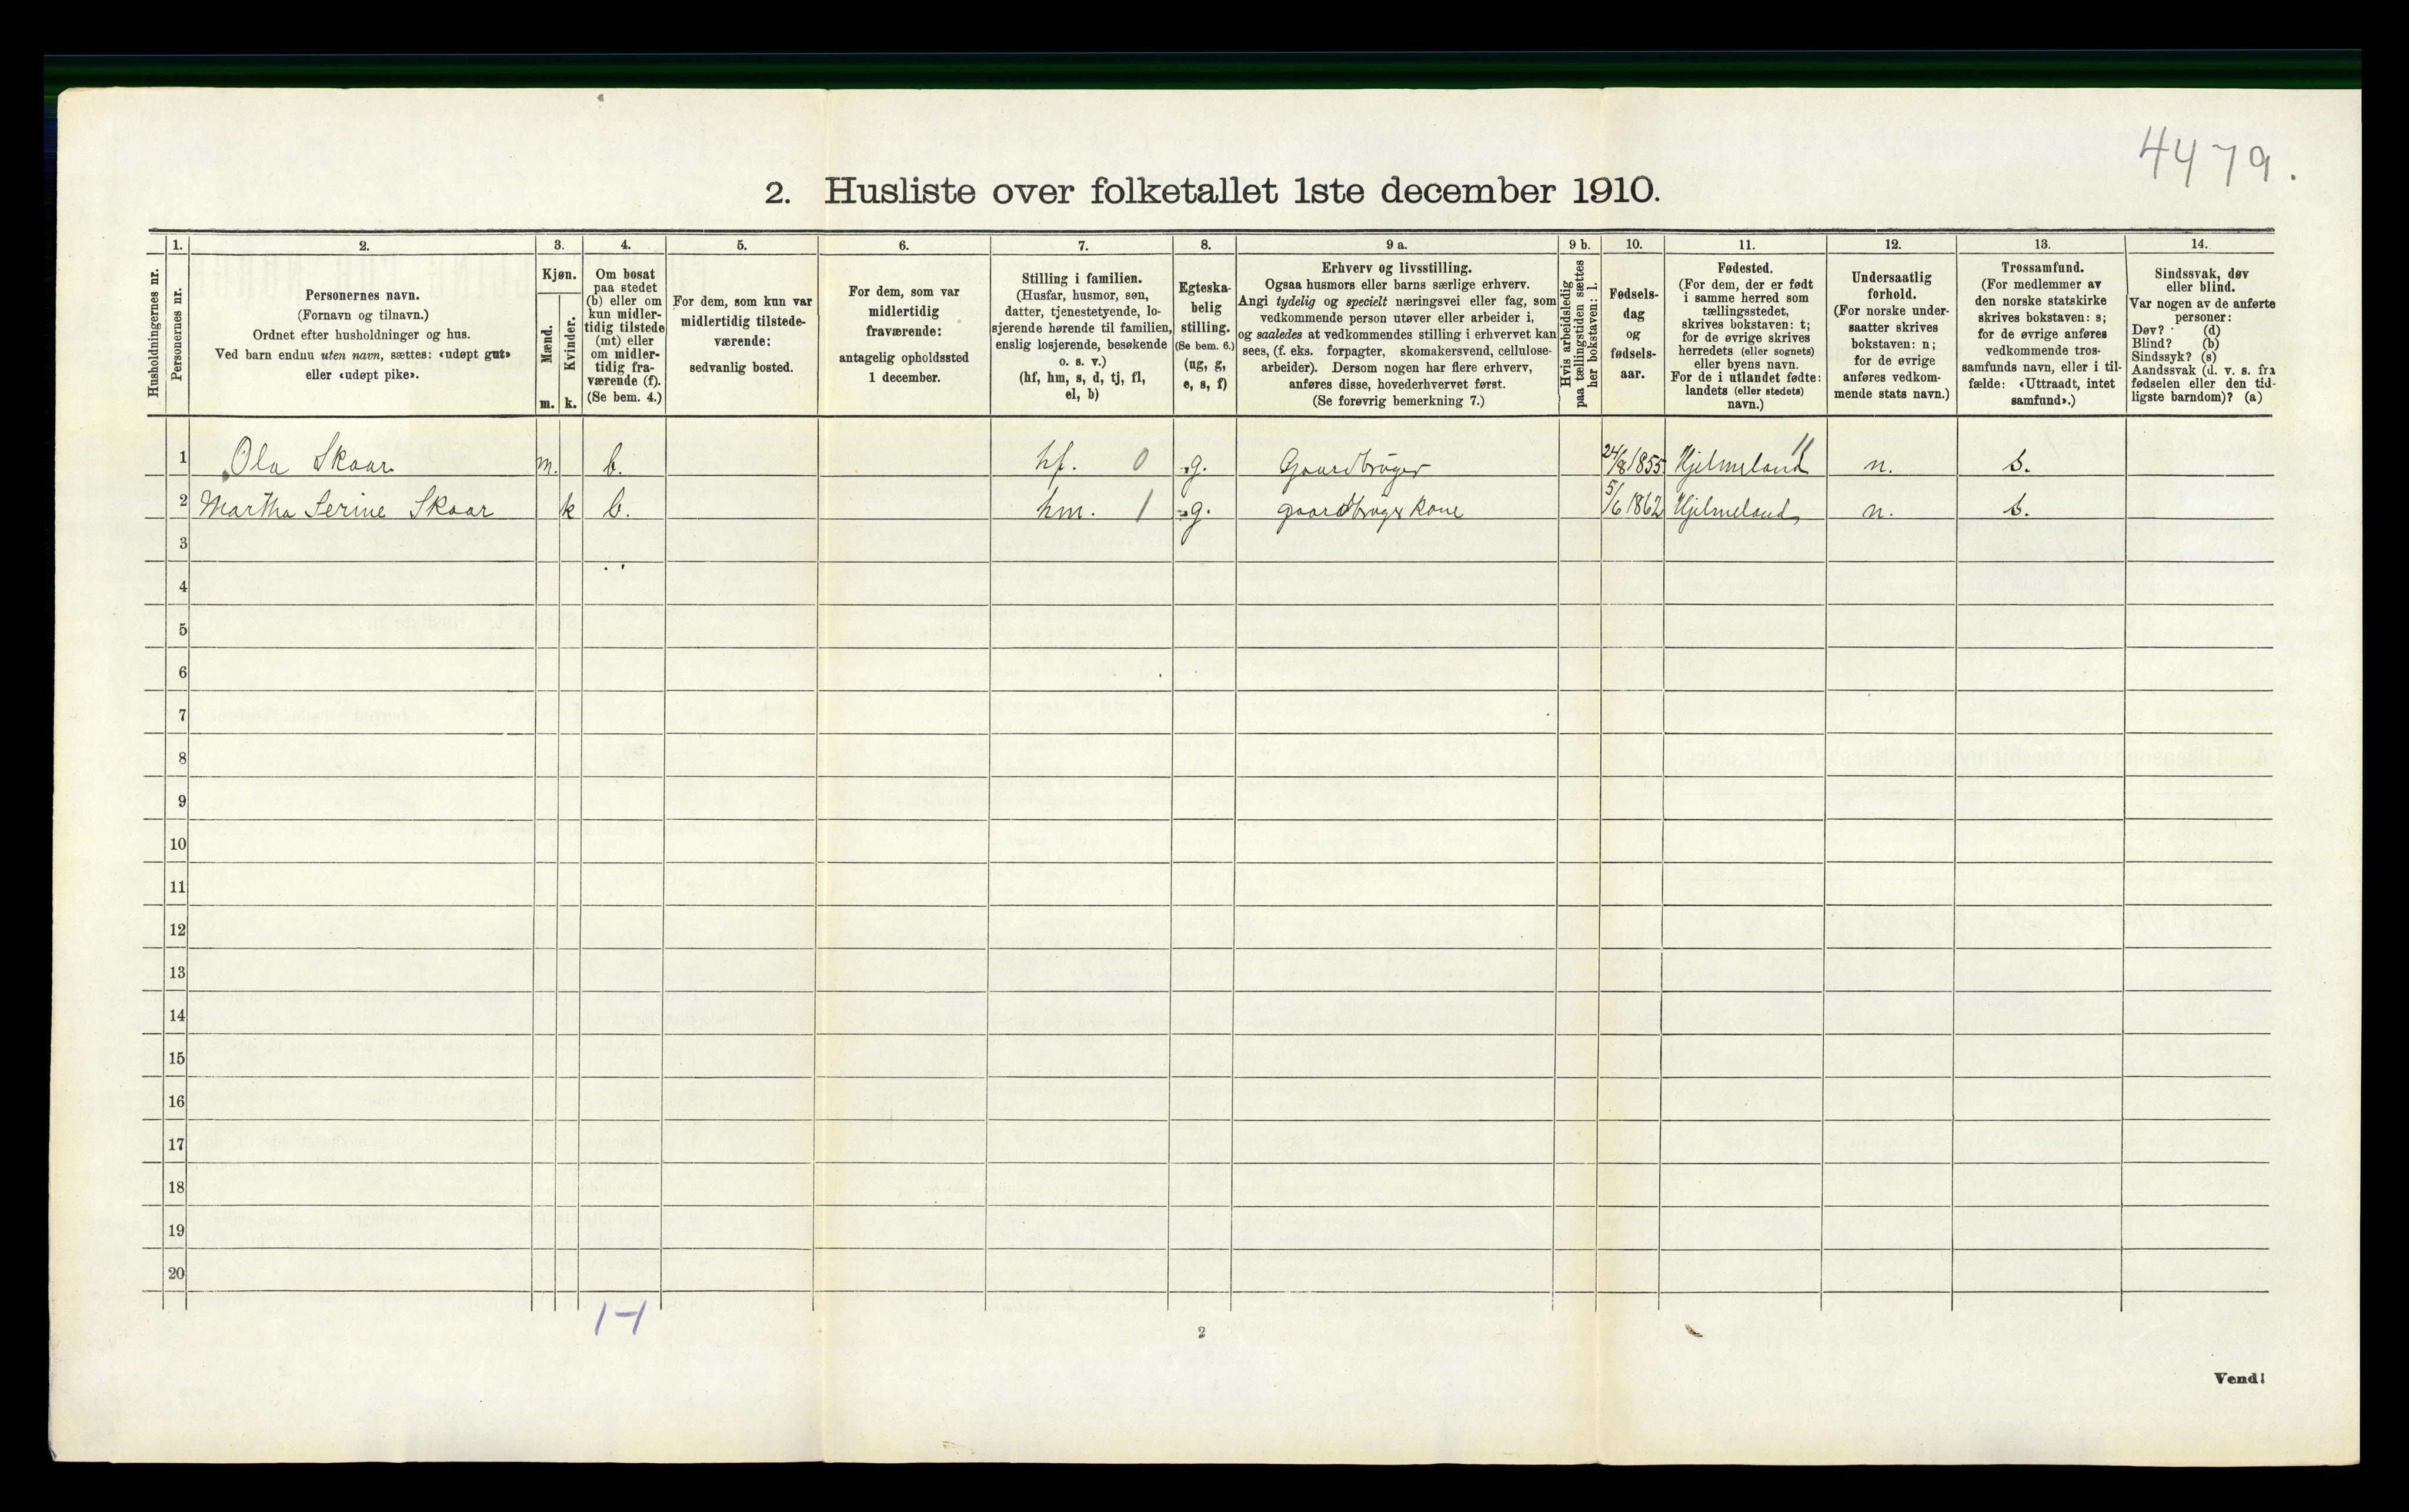 4479.
2. Husliste over folketallet 1ste december 1910.
Husholdningernes nr.
1.
Personernes nr.
2.
Personernes navn.
(Fornavn og tilnavn.)
Ordnet efter husholdninger og hus.
Ved barn endnu uten navn, sættes: «udøpt gut»
eller «udøpt pike».
3.
Kjøn.
Mænd.
m.
Kvinder.
k.
4.
Om bosat
paa stedet
(b) eller om
kun midler-
tidig tilstede
(mt) eller
om midler-
tidig fra-
værende (f).
(Se bem. 4.)
5.
For dem, som kun var
midlertidig tilstede-
værende:
sedvanlig bosted.
6.
For dem, som var
midlertidig
fraværende:
antagelig opholdssted
1 december.
7.
Stilling i familien.
(Husfar, husmor, søn,
datter, tjenestetyende, lo-
sjerende hørende til familien,
enslig losjerende, besøkende
o. s. v.)
(hf, hm, s, d, tj, fl,
el, b)
8.
Egteska-
belig
stilling.
(Se bem. 6.)
(ug, g,
e, s, f)
9 a.
Erhverv og livsstilling.
Ogsaa husmors eller barns særlige erhverv.
Angi tydelig og specielt næringsvei eller fag, som
vedkommende person utøver eller arbeider i,
og saaledes at vedkommendes stilling i erhvervet kan
sees, (f. eks. forpagter, skomakersvend, cellulose-
arbeider). Dersom nogen har flere erhverv,
anføres disse, hovederhvervet først.
(Se forøvrig bemerkning 7.)
9 b.
Hvis arbeidsledig
paa tællingstiden sættes
her bokstaven: l.
10.
Fødsels-
dag
og
fødsels-
aar.
11.
Fødested.
(For dem, der er født
i samme herred som
tællingsstedet,
skrives bokstaven: t;
for de øvrige skrives
herredets (eller sognets)
eller byens navn.
For de i utlandet fødte:
landets (eller stedets)
navn.)
12.
Undersaatlig
forhold.
(For norske under-
saatter skrives
bokstaven: n;
for de øvrige
anføres vedkom-
mende stats navn.)
13.
Trossamfund.
(For medlemmer av
den norske statskirke
skrives bokstaven: s;
for de øvrige anføres
vedkommende tros-
samfunds navn, eller i til-
fælde: «Uttraadt, intet
samfund».)
14.
Sindssvak, døv
eller blind.
Var nogen av de anførte
personer:
Døv? (d)
Blind? (b)
Sindssyk? (s)
Aandssvak (d. v. s. fra
fødselen eller den tid-
ligste barndom)? (a)
1 Ola Skaar. m. b. hf. 0 g. Gaardbruger 24/8 1855 Hjelmeland 11 n. s.
2 Martha Serine Skaar k b. hm. 1 g. gaardbruger kone 5/6 1862 Hjelmeland n. s.
3
4
5
6
7
8
9
10
11
12
13
14
15
16
17
18
19
20
1-1
2
Vend!